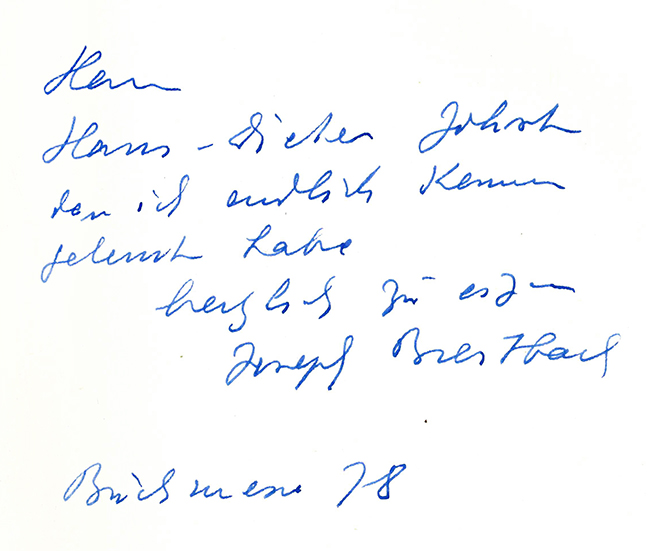 Herrn
Hans-Dieter
den ich endlich kennen
gelernt habe
herzlich zu
Joseph Breitbach
Buchmesse 78